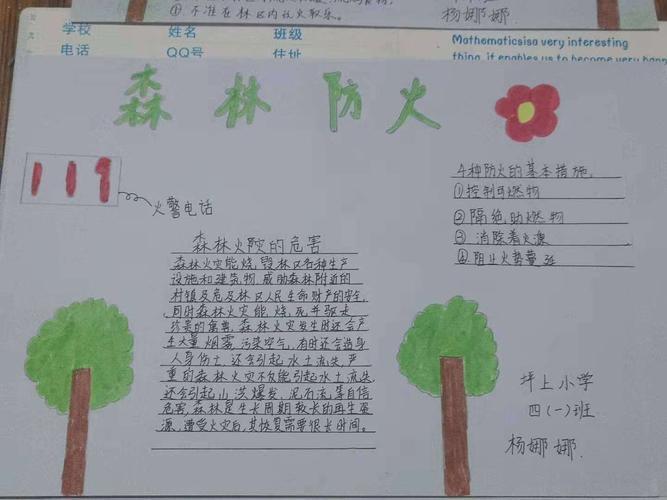 ①不准在林区内设火取乐。
杨娜娜.
学校
姓名
班级
电话
QQ号
住址
Mathematicsisa very interesting
thing, it enables us to become very happy
森林防火
119
火警电话
4种防火的基本措施.
①控制可燃物
②隔绝助燃物
③消除着火源
④阻止火势蔓延
森林火灾的危害
森林火灾能烧,毁林区各种生产
设施和建筑物,威胁森林附近的
村镇及危及林区人民生命财产的安全,
同时森林火灾能,烧,死并驱走
珍贵的禽兽,森林火灾发生时还会产
生大量烟雾污染空气,有时还会造身
人身伤亡,还会引起水土流失,严
重的森林火灾不仅能引起水土流失
还会引起山洪爆发,泥石流,等自信
危害,森林是生长周期较长的再生资
源,遭受火灾后,其恢复需要很长时间。
坪上小学
四(一)班
杨娜娜.